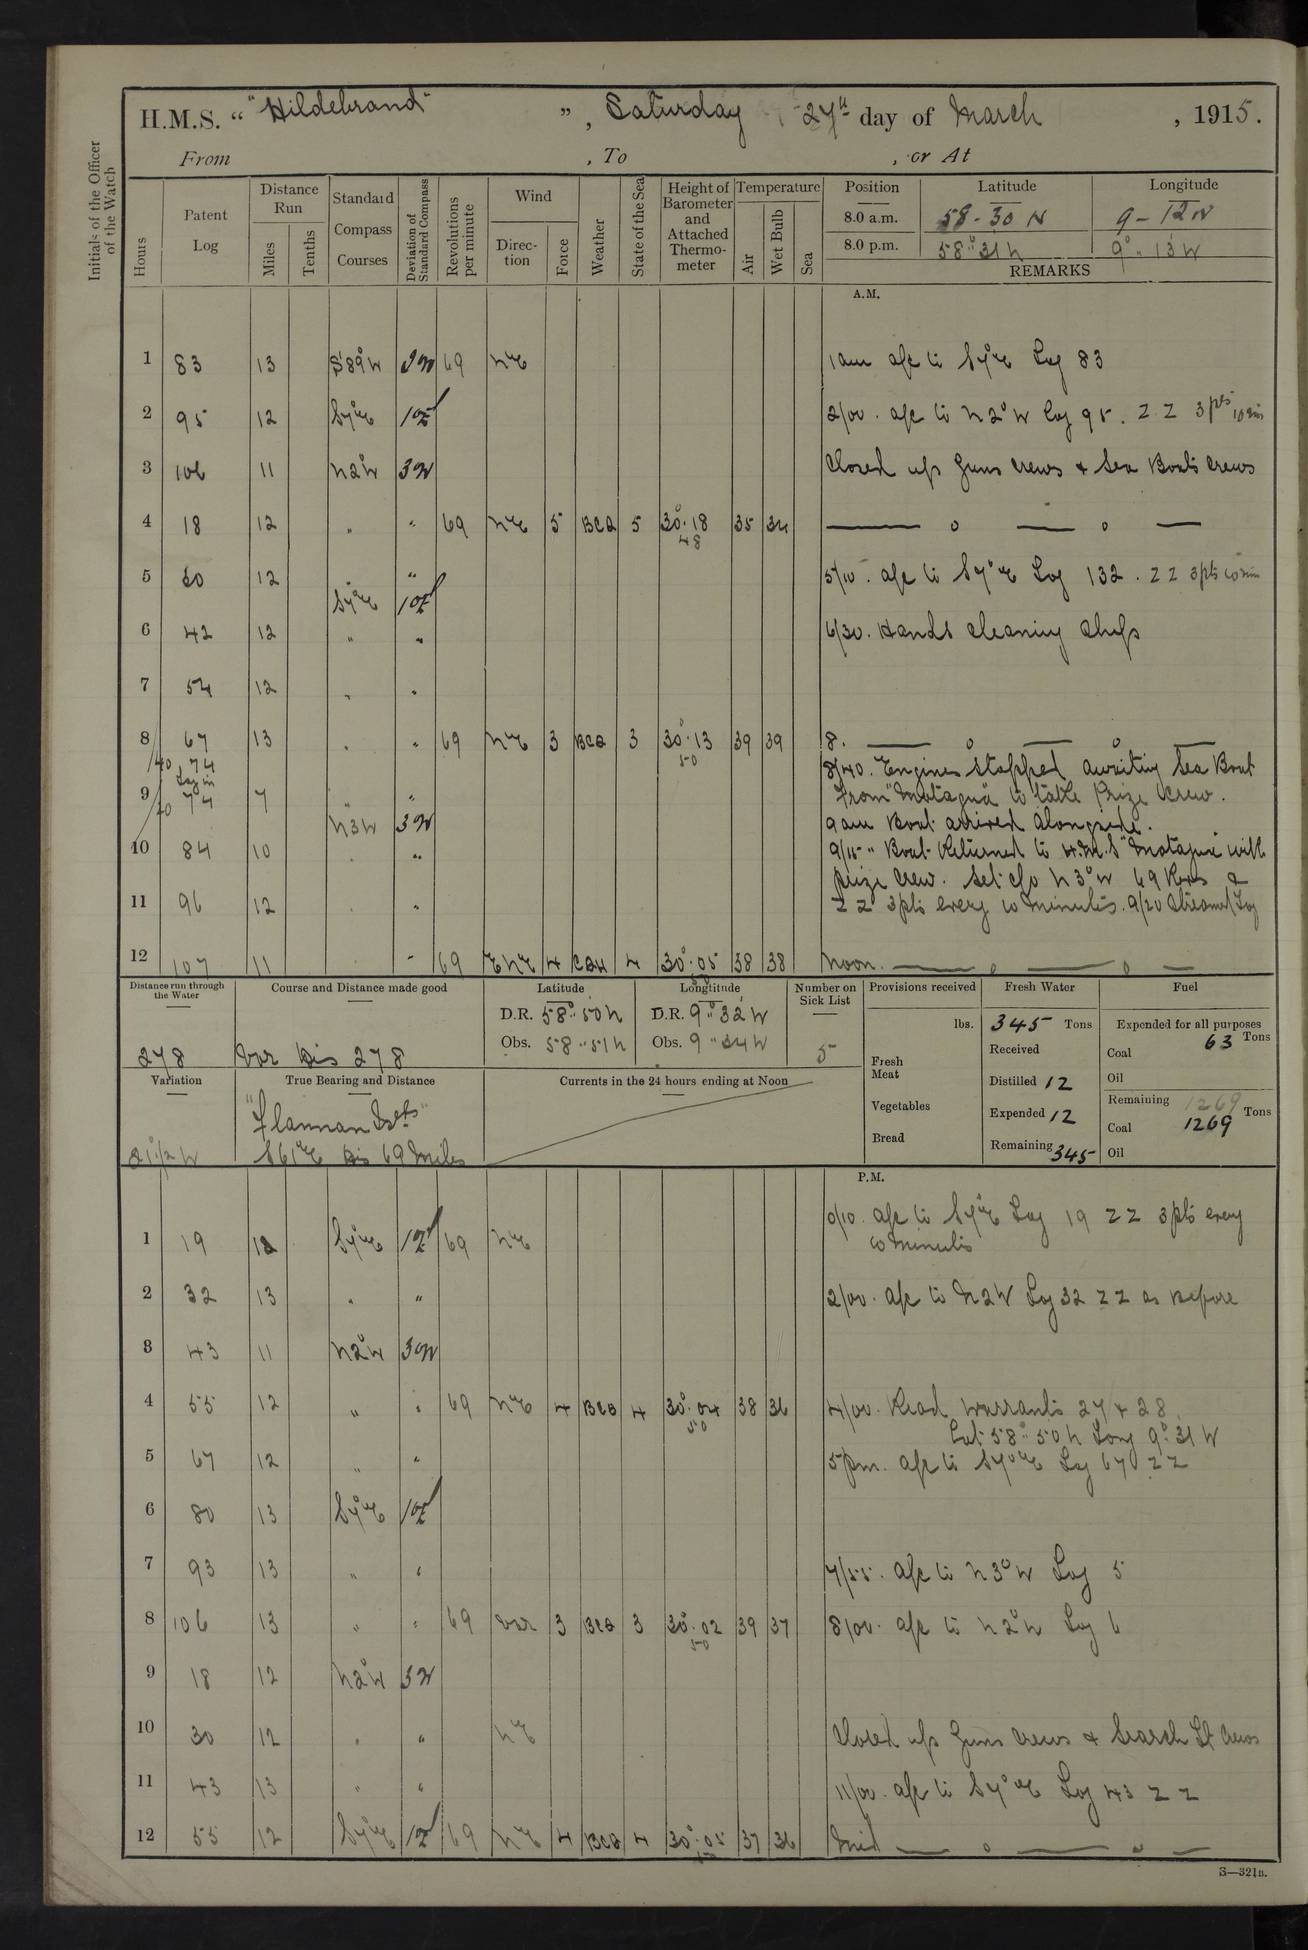 H.M.S. "Hildebrand", Saturday 27th day of March, 1915.
From , To , or At
Initials of the Officer of the Watch
Hours Patent Log Distance Run Miles Tenths Standard Compass Courses Deviation of Standard Compass Revolutions per minute Wind Direction Force Weather State of the Sea Height of Barometer and Attached Thermometer Temperature Air Wet Bulb Sea Position Latitude Longitude
8.0 a.m. 58-30 N 9-12 W
8.0 p.m. 58° 31 N 9° 13 W
REMARKS
A.M.
1 83 13 S 89° W 9 W 69 NE 1 am a/c to S 7° E Log 83
2 95 12 S 7° E 1 E 2/00. a/c to N 2° W log 95. Z Z 3 pts 10 min
3 106 11 N 2° W 3 W Closed up Guns crews & Sea Boats Crews
4 18 12 " " 69 NE 5 BCQ 5 30.18 48 35 34
5 30 12 " " 5/10. a/c to S 7° E Log 132. Z Z 3 pts 10 min
S 7° E 1 E
6 42 12 " " 6/30. Hands cleaning Ship
7 54 12 " "
8 67 13 " " 69 NE 3 BCQ 3 30.13 50 39 39 8.
/40 74 8/40. Engines stopped awaiting Sea Boat
Log in from "Motagua" to take Prize Crew.
9 /20 74 7 " " 9 am Boat arrived alongside.
N 3 W 3 W
10 84 10 " " 9/15 " Boat Returned to H.M.S "Motagua" with
prize crew. Set c/o N 3° W 69 Revs &
11 96 12 " " Z Z 3 pts every 10 minutes. 9/20 Streamed Log
12 107 11 " 69 ENE 4 4 30.05 38 38 Noon.
Distance run through the Water Course and Distance made good Latitude Longitude Number on Sick List Provisions received Fresh Water Fuel
D.R. 58° 50 N D.R. 9° 32 W lbs. 345 Tons Expended for all purposes
278 Var Dis 278 Obs. 58 51 N Obs. 9 34 W 5 Received Coal 63 Tons
Variation True Bearing and Distance Currents in the 24 hours ending at Noon Fresh Meat Distilled 12 Oil
"Flannan Islets" Vegetables Expended 12 Remaining 1269 Tons
Coal 1269
21 1/2 W S 61° E Dis 69 Miles Bread Remaining 345 Oil
P.M.
0/10. a/c to S 7° E Log 19 Z Z 3 pts every
1 19 12 S 7° E 1 E 69 NE 10 Minutes
2 32 13 " " 2/00. a/c to N 2 W Log 32 Z Z as Before
3 43 11 N 2° W 3 W
4 55 12 " " 69 NE 4 4 30.04 50 38 36 4/00. Read Warrants 27 & 28.
Lat 58° 50 N Long 9° 31 W
5 67 12 " " 5 pm. a/c to S 7° E Log 67 Z Z
6 80 13 S 7° E 1 E
7 93 13 " " 7/55. a/c to N 3° W Log 5
8 106 13 " " 69 Var 3 BCQ 3 30.02 50 39 37 8/00. a/c to N 2° W Log 6
9 18 12 N 2° W 3 W
10 30 12 " " NE Closed up Guns crews & Search Lt Crews
11 43 13 " " 11/00. a/c to S 7° E Log 43 Z Z
12 55 12 S 7° E 1 E 69 NE 4 BCQ 4 30.05 37 36 Mid
S—321B.